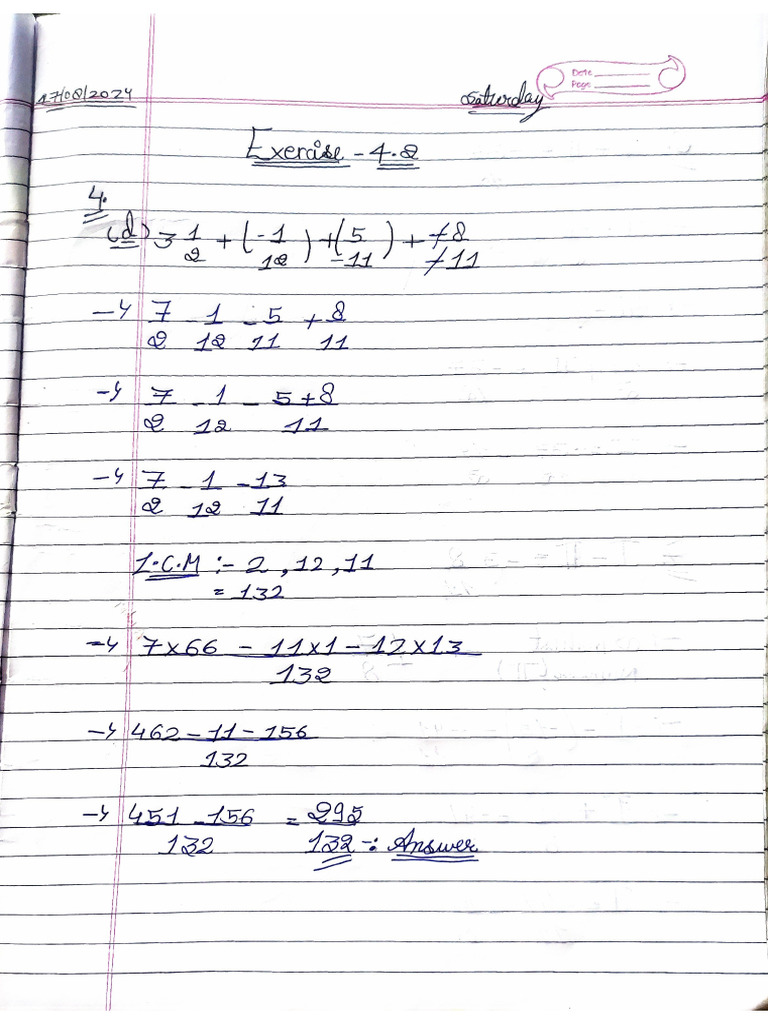 Date
Page
17/08/2024 Saturday
Exercise - 4.2
4.
(d) 3 1/2 + (-1/12) + (5/-11) + -8/-11
→ 7/2 - 1/12 - 5/11 + 8/11
→ 7/2 - 1/12 - 5+8/11
→ 7/2 - 1/12 - 13/11
L.C.M :- 2, 12, 11
= 132
→ 7×66 - 11×1 - 12×13/132
→ 462 - 11 - 156/132
→ 451 - 156/132 = 295/132 -: Answer